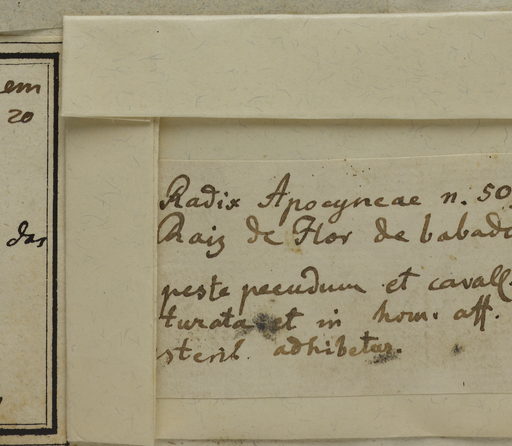 em
20
das
Radix Apocyneae n. 50
Raiz de Flor de babado
peste pecudum et cavall.
turata et in hom. aff.
steril. adhibetur.